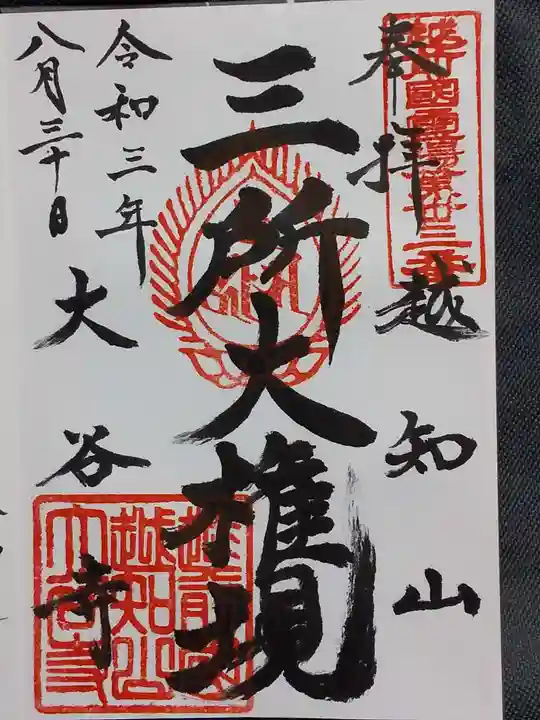 奉拝
越知山
三所大権現
令和三年
八月三十日
大谷寺
越前國霊場第廿三番
越前國
越知山
大谷寺